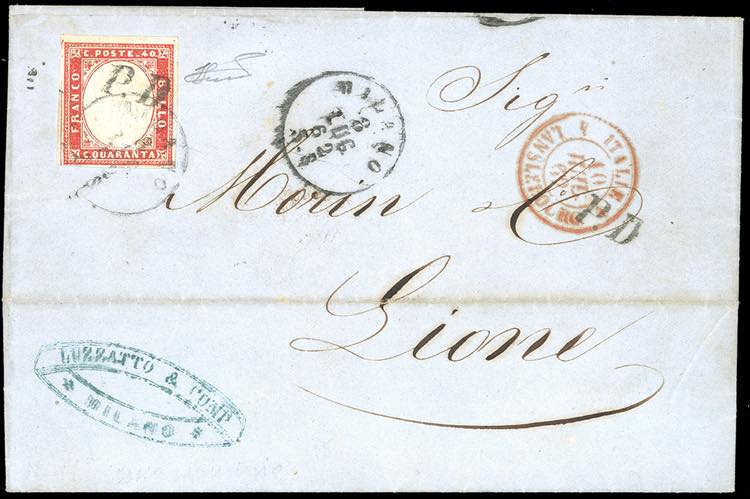 C. POSTE. 40
FRANCO
BOLLO
C. QUARANTA
P.D
MILANO
LUG
62
Sig.
Morin &
Lione
ITALIE
LANSLEBOURG
P.D
LUZZATTO & COMP.
MILANO